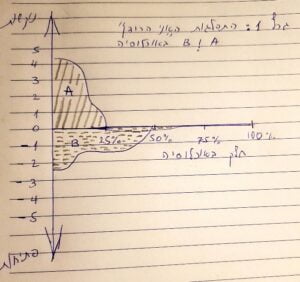 1: התפלגות
A ו B באוכלוסיה
5
4
3
2
1
0
-1
-2
-3
-4
-5
A
B
25% 50% 75% 100%
חלק באוכלוסיה